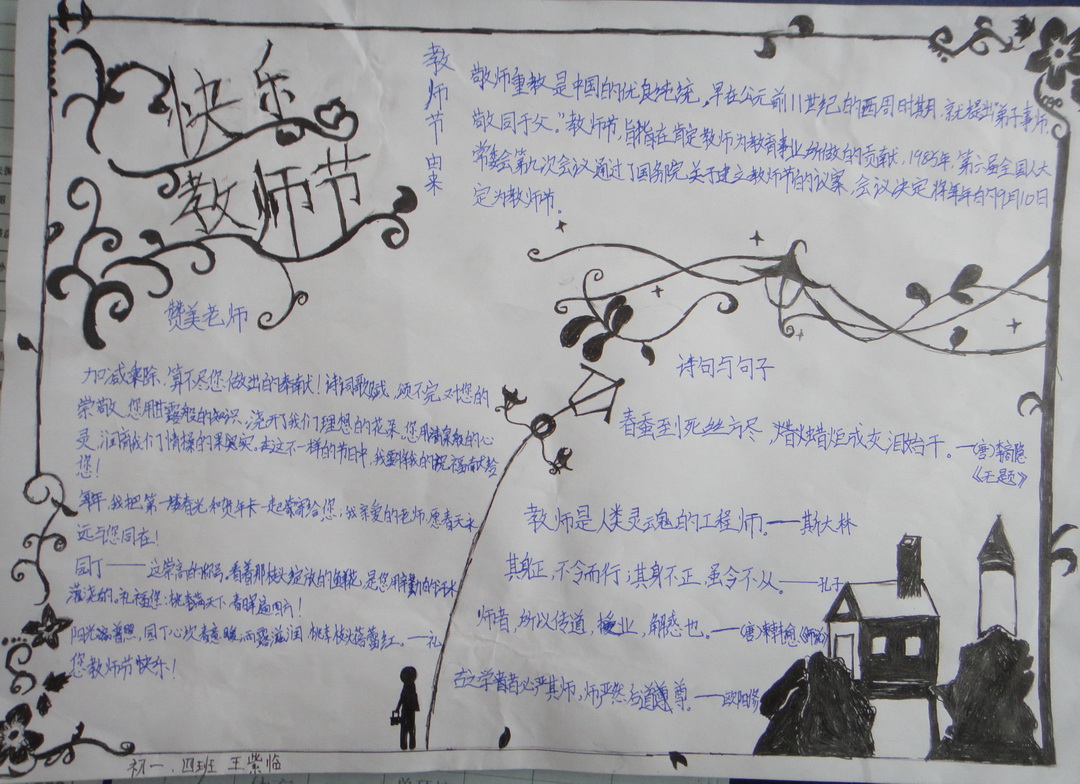 快乐
教师节
教师节由来
敬师重教是中国的优良传统。早在公元前11世纪的西周时期，就提出"弟子事师，
敬同于父。"教师节，旨指在肯定教师为教育事业所做的贡献，1985年，第六届全国人大
常委会第九次会议通过了国务院关于建立教师节的议案，会议决定将每年的9月10日
定为教师节。
赞美老师
加减乘除，算不尽您做出的奉献！诗词歌赋，颂不完对您的
崇敬。您用甘露般的知识，浇开了我们理想的花朵，您用清泉般的心
灵，润育我们情操的果实。在这不一样的节日中，我要将我的祝福献给
您！
每年，我把第一缕春光和贺年卡一起寄给您，我亲爱的老师，愿春天永
远与您同在！
园丁——这崇高的称号。看着那枝头绽放的鲜花，是您用辛勤的汗水
灌浇的。祝福您：桃李满天下，春晖遍四方！
阳光普照，园丁心坎春意暖；雨露滋润，桃李枝头蓓蕾红。——礼
您教师节快乐！
诗句与句子
春蚕到死丝方尽，蜡炬成灰泪始干。——(唐)李商隐
《无题》
教师是人类灵魂的工程师。——斯大林
其身正，不令而行；其身不正，虽令不从。——孔子
师者，所以传道，授业，解惑也。——(唐)韩愈《师说》
古之学者必严其师，师严然后道尊。——欧阳修
初一．四班 王紫临